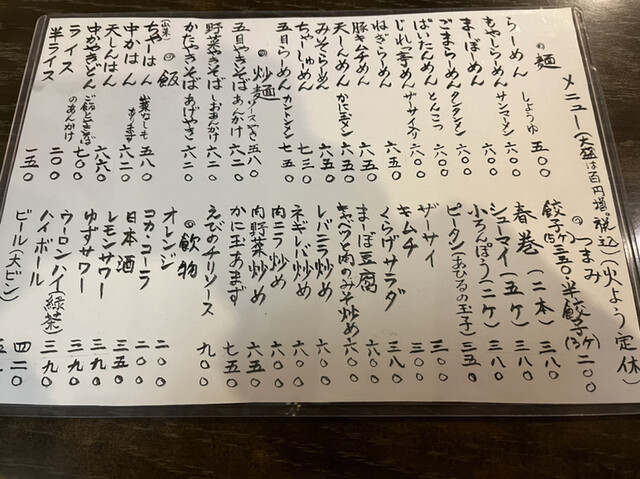 メニュー(大盛は百円増。税込)(火よう定休)
◎麺
らーめん しょうゆ 五〇〇
もやしらーめん サンマーメン 六〇〇
まーぼーめん 六〇〇
ごまらーめん タンタンメン 六〇〇
ぱいたんめん とんこつ 六〇〇
じれっ亭めん ザーサイ入 六五〇
ねぎらーめん 六五〇
豚キムチめん 六五〇
天しーめん かに玉メン 六五〇
みそらーめん 六五〇
ちゃーしゅーめん 七三〇
五目らーめん カントンメン 七五〇
◎炒麺
ソースやき 五八〇
五目やきそば あんかけ 六二〇
野菜やきそば しおあんかけ 六二〇
かたやきそば あげやき 六二〇
◎飯
ちゃーはん 五八〇
中かはん 六二〇
天しんはん 六六〇
中かやきどん ご飯とやきそばのあんかけ 七〇〇
ライス 二〇〇
半ライス 一五〇
◎つまみ
餃子(5ケ)三五〇・半餃子(3ケ)二〇〇
春巻(二本)三八〇
シューマイ(五ケ)三八〇
小ろんぽう(二ケ)三五〇
ピータン(あひるの玉子)三五〇
ザーサイ 三〇〇
キムチ 三〇〇
くらげサラダ 三八〇
まーぼ豆腐 六〇〇
キャベツと肉のみそ炒め 六〇〇
レバニラ炒め 六〇〇
ネギレバ炒め 六〇〇
肉ニラ炒め 六〇〇
肉野菜炒め 六五〇
かに玉あまず 七五〇
えびのチリソース 九〇〇
◎飲物
オレンジ 二〇〇
コカ・コーラ 二〇〇
日本酒 三五〇
レモンサワー 三九〇
ゆずサワー 三九〇
ウーロンハイ(緑茶) 三九〇
ハイボール 四二〇
ビール(大ビン)